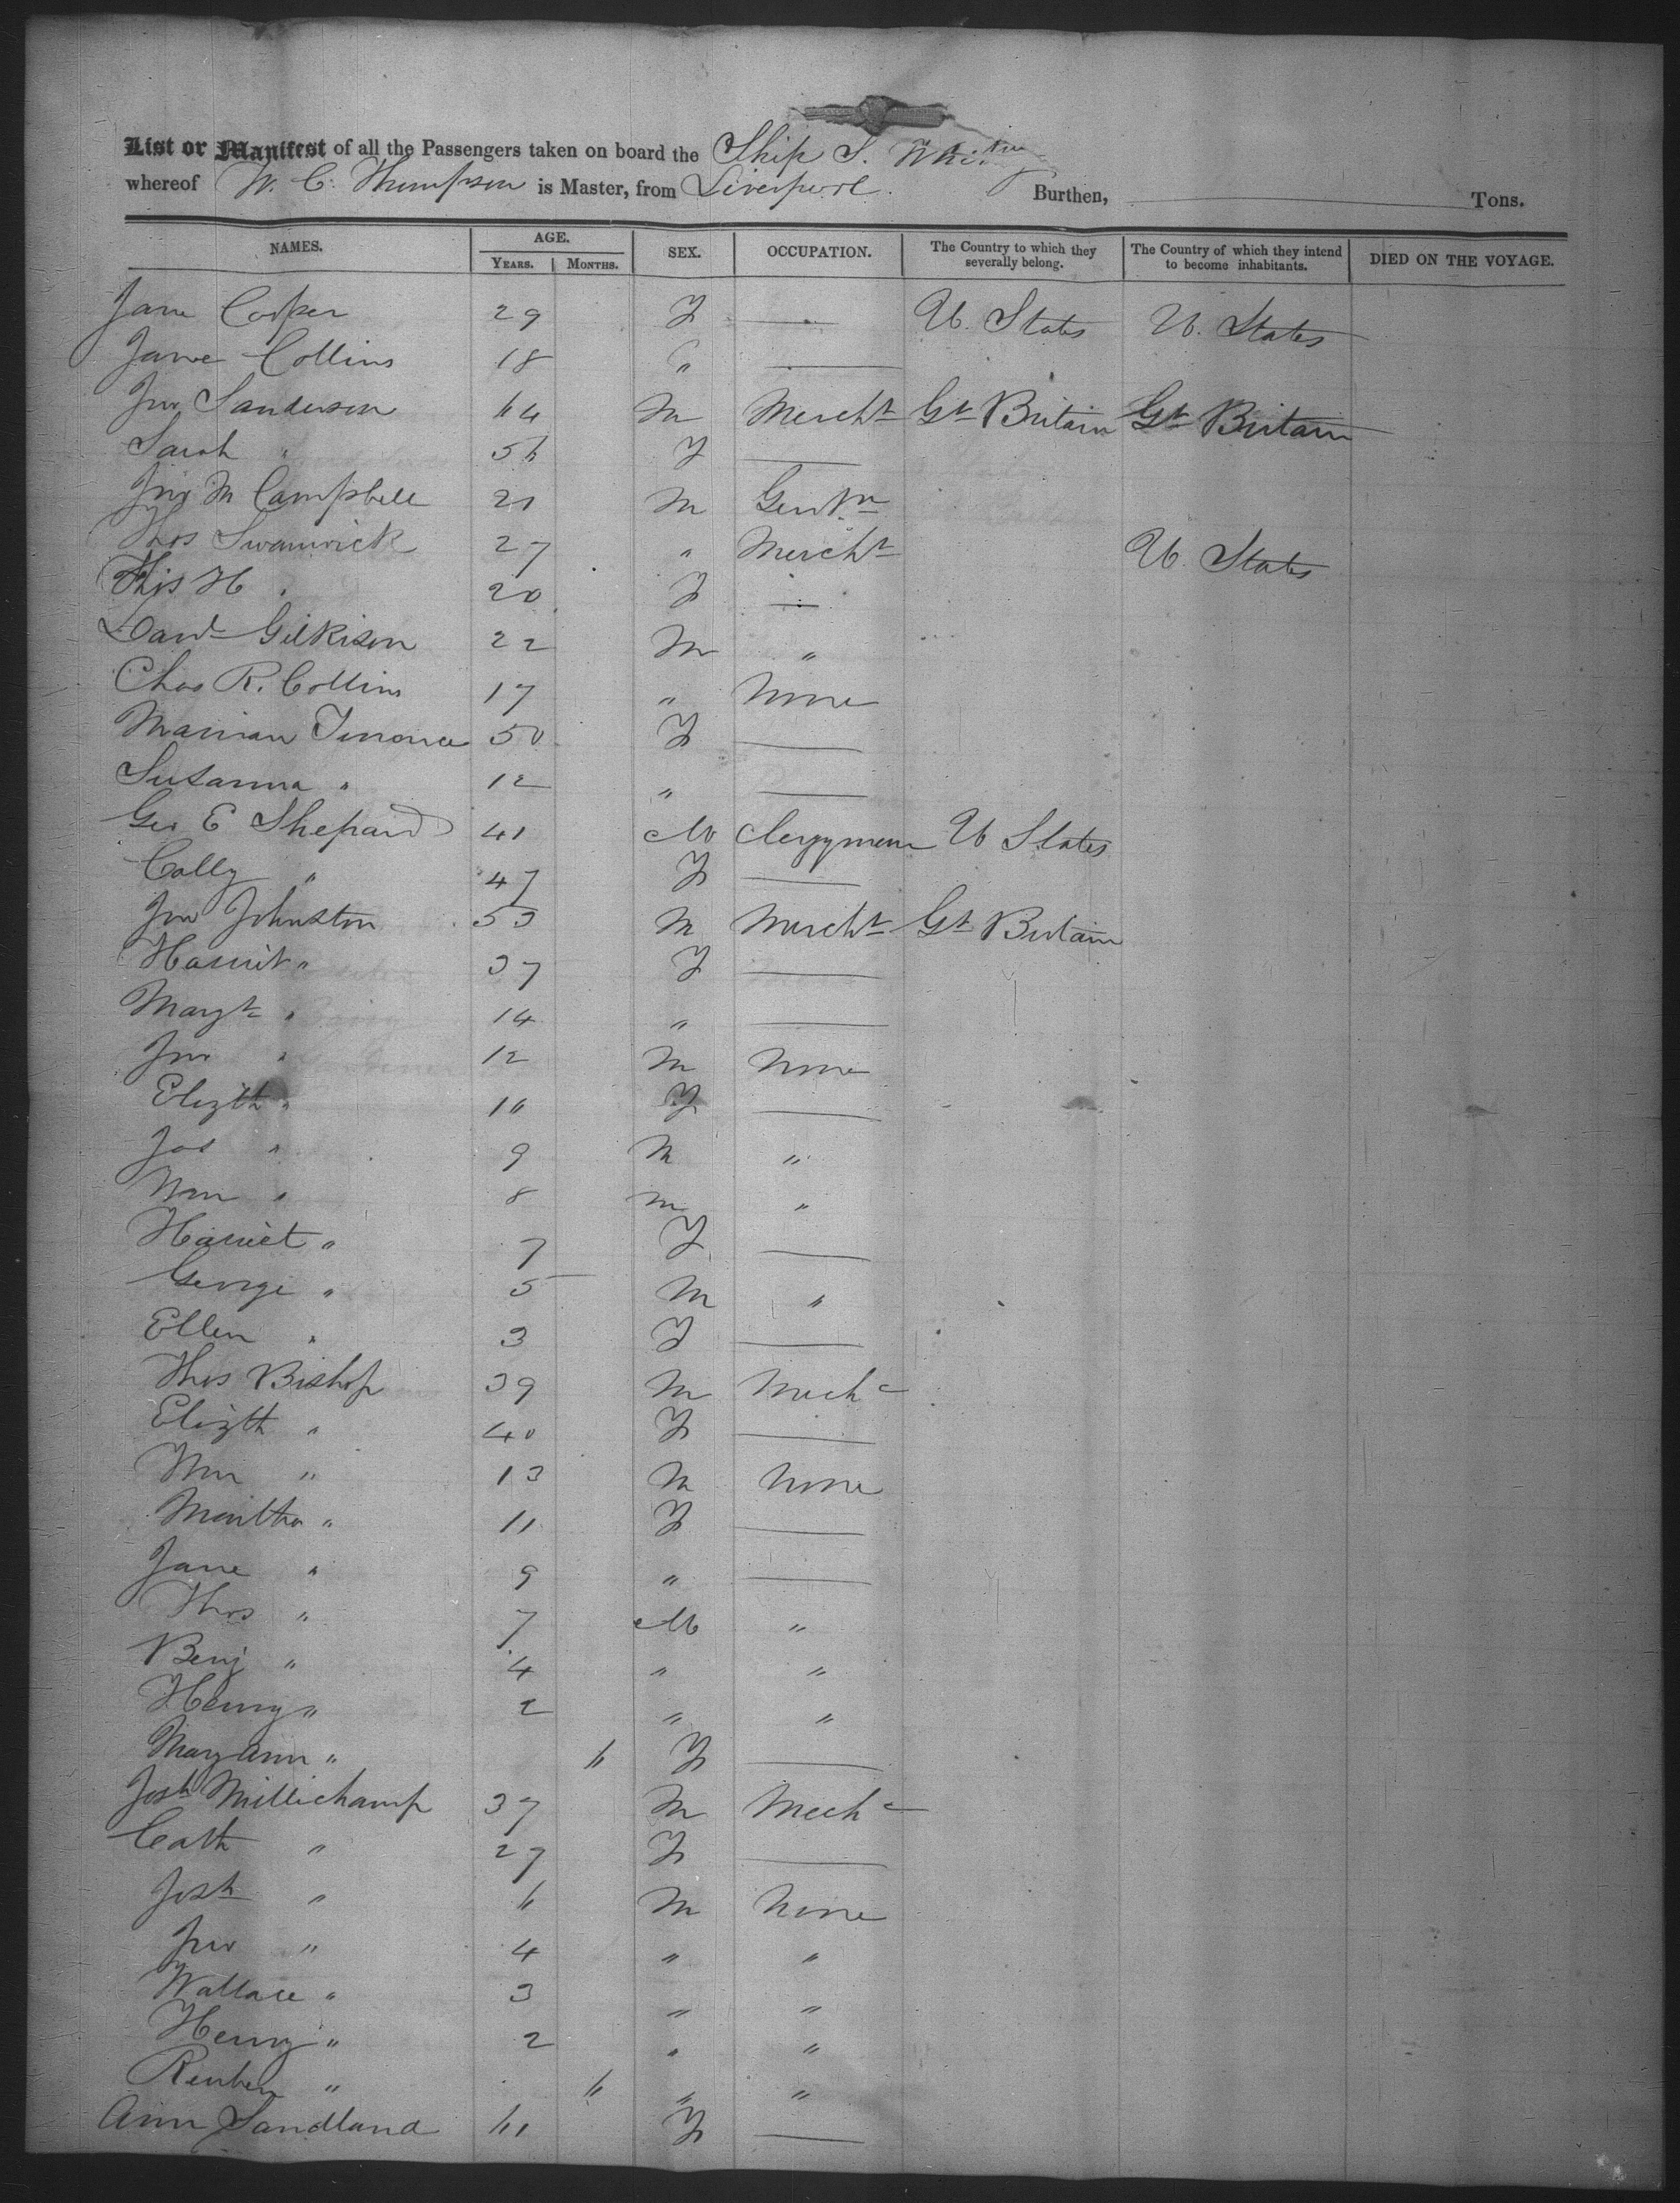 List or Manifest of all the Passengers taken on board the Ship S. Whitney
whereof W. C. Thompson is Master, from Liverpool. Burthen, Tons.
NAMES. AGE. SEX. OCCUPATION. The Country to which they severally belong. The Country of which they intend to become inhabitants. DIED ON THE VOYAGE.
YEARS. MONTHS.
Jane Cooper 29 F — U. States U. States
Jane Collins 18 " —
Jno Sanderson 64 M Mercht Gt Britain Gt Britain
Sarah " 56 F —
Jno M Campbell 21 M Gentn
Thos Swanwick 27 " Mercht U. States
H " 20 F —
Gilkison 22 M "
Chas R. Collins 17 " None
50 F —
Susanna " 12 " —
Geo E Shepard 41 M Clergyman U States
Cally " 47 F —
Jno Johnston 53 M Mercht Gt Britain
Harriet " 37 F —
Margt " 14 " —
Jno " 12 M None
Elizth " 10 F —
Jos " 9 M "
Wm " 8 M "
Harriet " 7 F —
George " 5 M "
Ellen " 3 F —
Thos Bishop 39 M Mechc
Elizth " 40 F —
Wm " 13 M None
Martha " 11 F —
Jane " 9 " —
Thos " 7 M "
Benj " 4 " "
Henry " 2 " "
Mary Ann " 6 F —
Josh Millichamp 37 M Mechc
Cath " 27 F —
Josh " 6 M None
Jno " 4 " "
Wallace " 3 " "
Henry " 2 " "
Reuben " 6 " "
Ann Sandland 61 F —